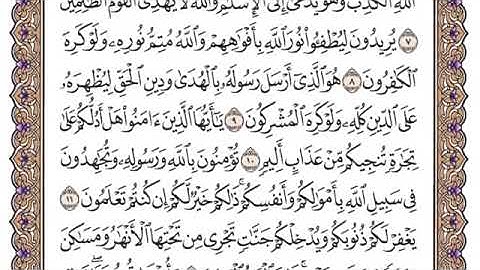 اللَّهِ الْكَذِبَ وَهُوَ يُدْعَىٰ إِلَى الْإِسْلَامِ وَاللَّهُ لَا يَهْدِي الْقَوْمَ الظَّالِمِينَ
٧ يُرِيدُونَ لِيُطْفِئُوا نُورَ اللَّهِ بِأَفْوَاهِهِمْ وَاللَّهُ مُتِمُّ نُورِهِ وَلَوْ كَرِهَ
الْكَافِرُونَ ٨ هُوَ الَّذِي أَرْسَلَ رَسُولَهُ بِالْهُدَىٰ وَدِينِ الْحَقِّ لِيُظْهِرَهُ
عَلَى الدِّينِ كُلِّهِ وَلَوْ كَرِهَ الْمُشْرِكُونَ ٩ يَا أَيُّهَا الَّذِينَ آمَنُوا هَلْ أَدُلُّكُمْ عَلَىٰ
تِجَارَةٍ تُنْجِيكُمْ مِنْ عَذَابٍ أَلِيمٍ ١٠ تُؤْمِنُونَ بِاللَّهِ وَرَسُولِهِ وَتُجَاهِدُونَ
فِي سَبِيلِ اللَّهِ بِأَمْوَالِكُمْ وَأَنْفُسِكُمْ ذَٰلِكُمْ خَيْرٌ لَكُمْ إِنْ كُنْتُمْ تَعْلَمُونَ ١١
يَغْفِرْ لَكُمْ ذُنُوبَكُمْ وَيُدْخِلْكُمْ جَنَّاتٍ تَجْرِي مِنْ تَحْتِهَا الْأَنْهَارُ وَمَسَاكِنَ